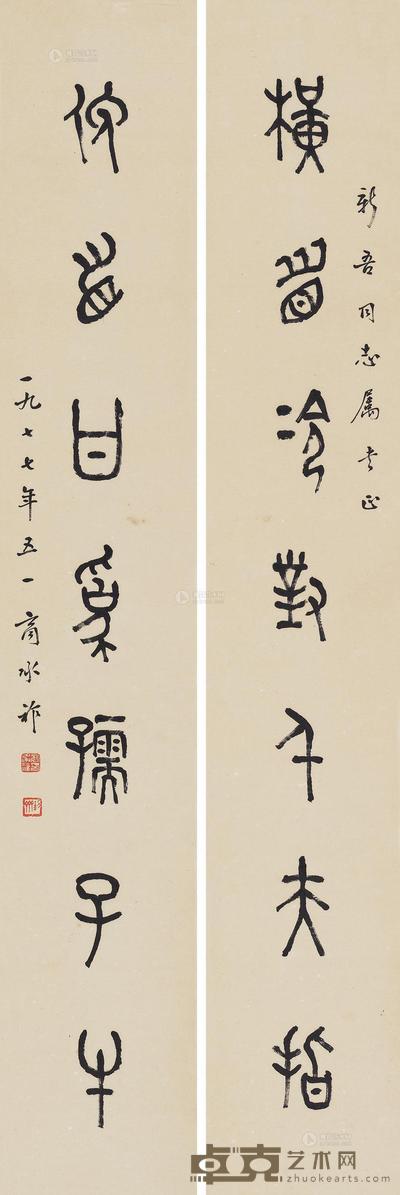 新吾同志属书正
橫眉冷對千夫指
俯首甘爲孺子牛
一九七七年五一商承祚
卓克艺术网
www.zhuokearts.com